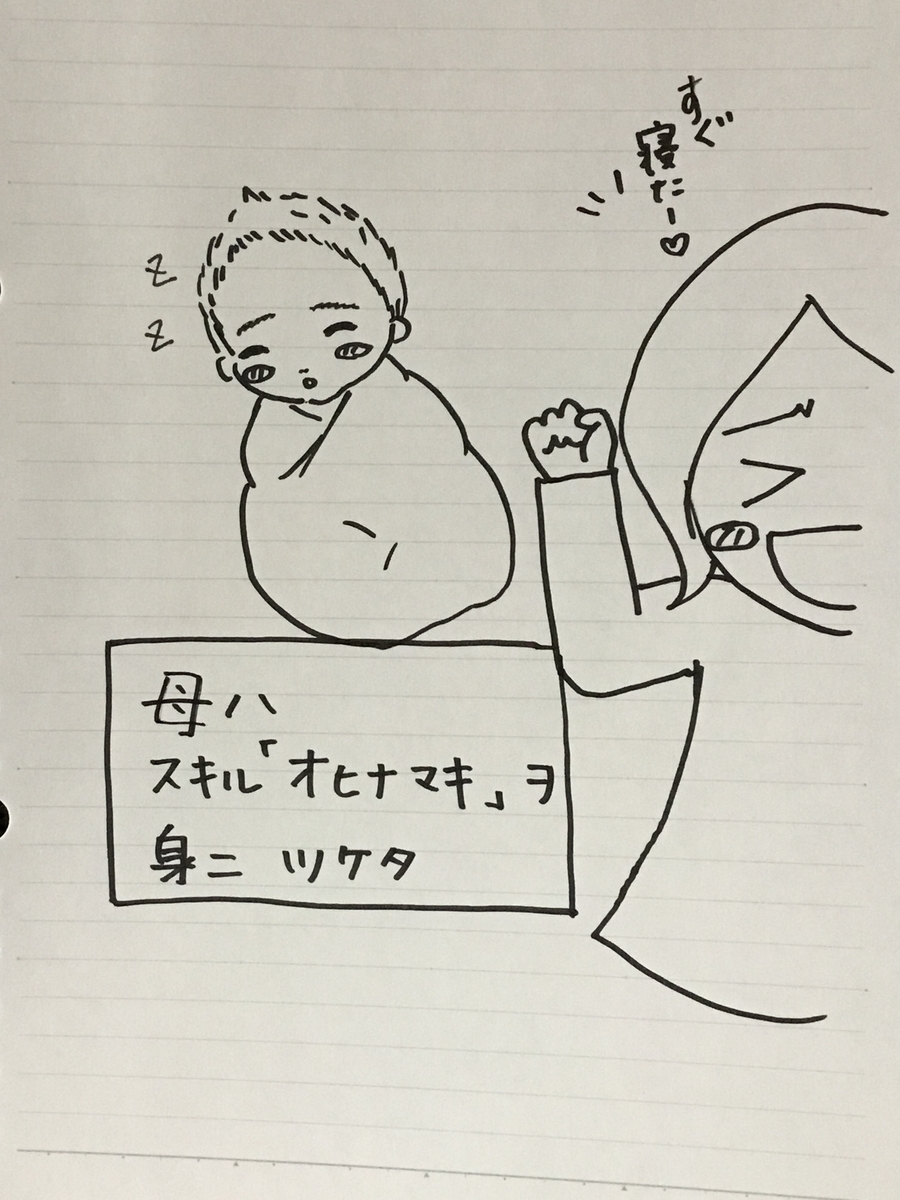 すぐ
寝たー♡
z
z
母ハ
スキル「オヒナマキ」ヲ
身ニ ツケタ